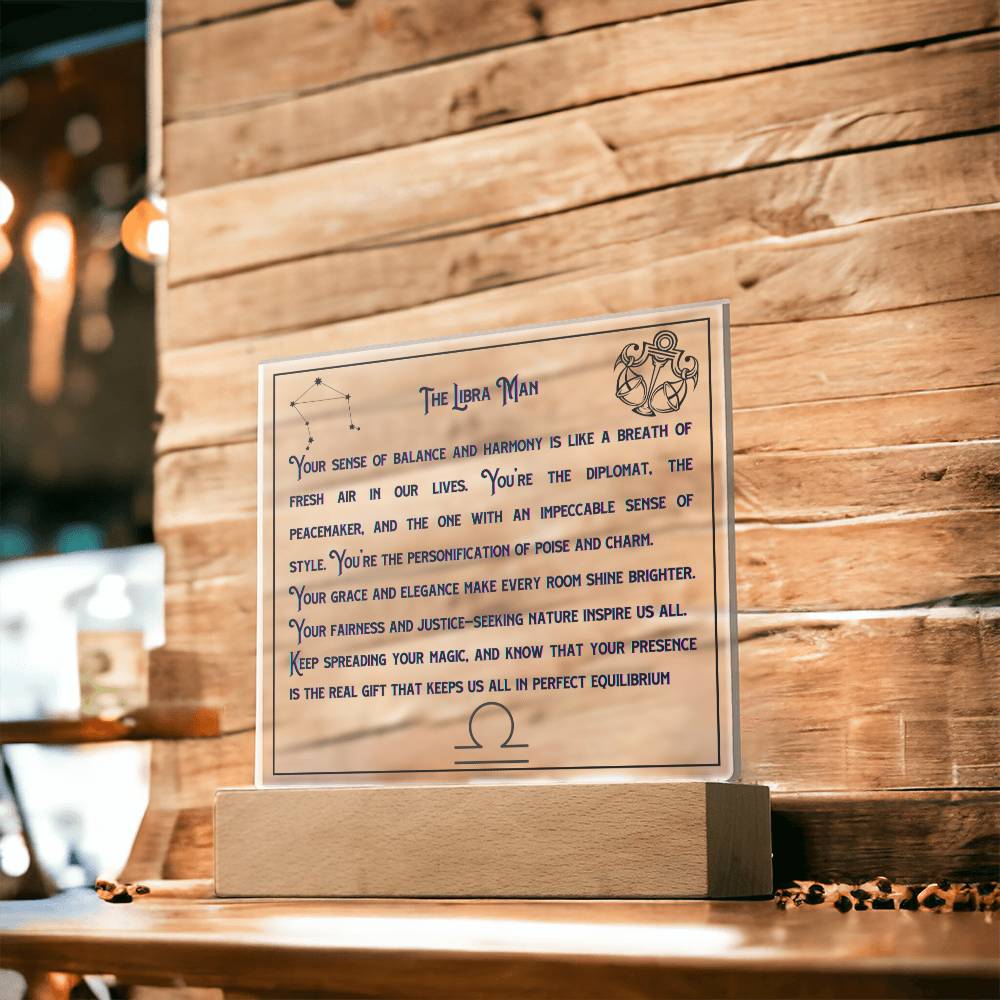 The Libra Man
Your sense of balance and harmony is like a breath of
fresh air in our lives. You're the diplomat, the
peacemaker, and the one with an impeccable sense of
style. You're the personification of poise and charm.
Your grace and elegance make every room shine brighter.
Your fairness and justice-seeking nature inspire us all.
Keep spreading your magic, and know that your presence
is the real gift that keeps us all in perfect equilibrium